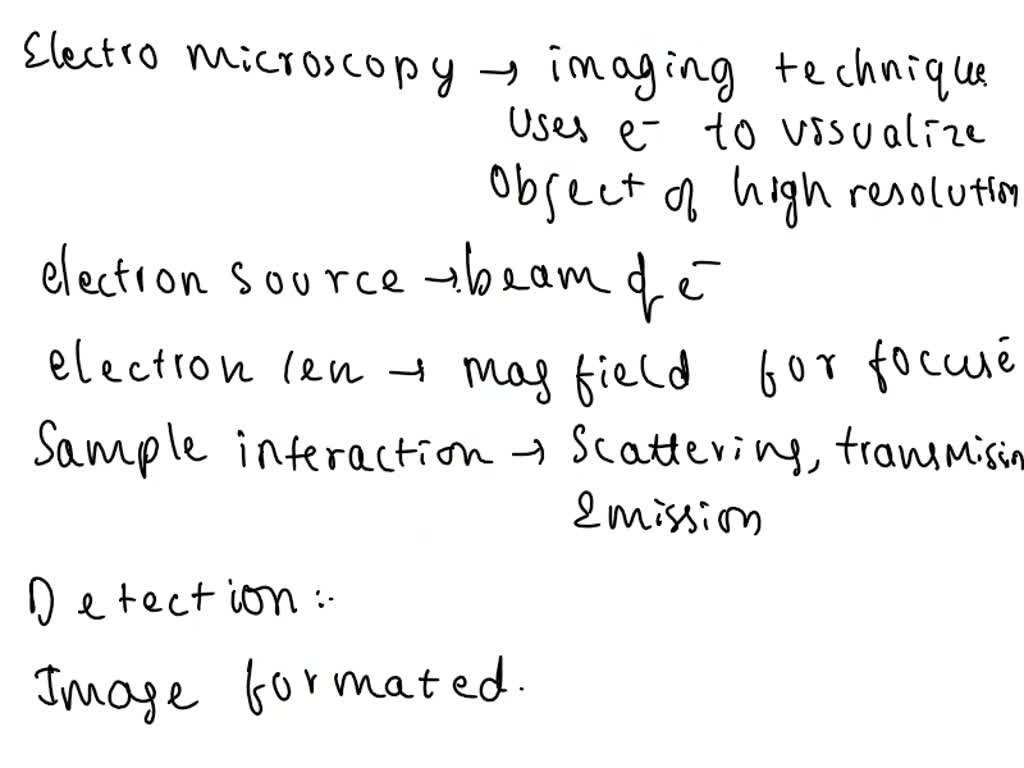 Electro microscopy → imaging technique
uses e⁻ to visualize
Object of high resolution
electron source → beam of e⁻
electron len → mag field for focuse
Sample interaction → Scattering, transmision
Emission
Detection :-
Image formated.